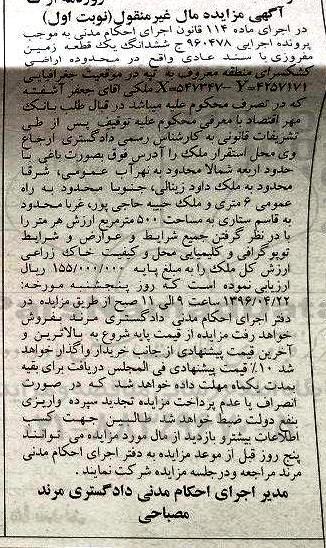 آگهی مزایده مال غیرمنقول(نوبت اول)
در اجرای ماده ۱۱۴ قانون اجرای احکام مدنی به موجب
پرونده اجرایی ۹۶۰۴۷۸ ج ششدانگ یک قطعه زمین
مفروزی با سند عادی واقع در محدوده اراضی
کشکسرای منطقه معروف به تپه در موقعیت جغرافیایی
X=۵۴۷۳۴۷- Y=۴۲۵۷۱۷۱ ملکی آقای جعفر آشفته
که در تصرف محکوم علیه میباشد در قبال طلب بانک
مهر اقتصاد با معرفی محکوم علیه توقیف پس از طی
تشریفات قانونی به کارشناس رسمی دادگستری ارجاع
وی محل استقرار ملک را آدرس فوق بصورت باغی با
حدود اربعه شمالا محدود به نهر آب عمومی، شرقا
محدود به ملک داود زینالی، جنوبا محدود به راه
عمومی ۶ متری و ملک حبیبه حاجی پور، غربا محدود
به قاسم ستاری به مساحت ۵۰۰ مترمربع ارزش هر متر را
با در نظر گرفتن جمیع شرایط و عوارض و شرایط
توپوگرافی و کلیمایی محل و کیفیت خاک زراعی
ارزش کل ملک را به مبلغ پایه ۱۵۵/۰۰۰/۰۰۰ ریال
ارزیابی نموده است که روز پنجشنبه مورخه:
۱۳۹۶/۰۴/۲۲ ساعت ۹ الی ۱۱ صبح از طریق مزایده در
دفتر اجرای احکام مدنی دادگستری مرند بفروش
خواهد رفت مزایده از قیمت پایه شروع به بالاترین و
آخرین قیمت پیشنهادی از جانب خریدار واگذار خواهد
شد ۱۰٪ قیمت پیشنهادی فی المجلس دریافت برای بقیه
بمدت یکماه مهلت داده خواهد شد که در صورت
انصراف یا عدم پرداخت مزایده تجدید سپرده واریزی
بنفع دولت ضبط خواهد شد طالبین جهت کسب
اطلاعات بیشتر و بازدید از مال مورد مزایده می توانند
پنج روز قبل از موعد مزایده به دفتر اجرای احکام مدنی
مرند مراجعه ودرجلسه مزایده شرکت نمایند.
مدیر اجرای احکام مدنی دادگستری مرند
مصباحی